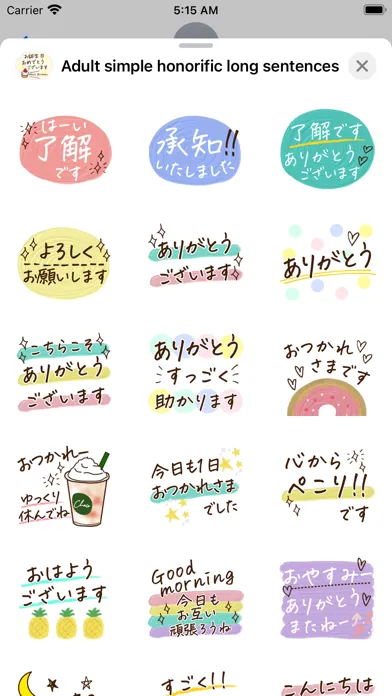 Carrier
5:15 AM
お誕生日
おめでとう
ございます
Adult simple honorific long sentences
はーい
了解
です
承知!!
いたしました
了解です
ありがとう
ございます
よろしく
お願いします
ありがとう
ございます
ありがとう
こちらこそ
ありがとう
ございます
ありがとう
すっごく
助かります
おつかれ
さまです
おつかれー
ゆっくり
休んでね
今日も1日
おつかれさま
でした
心から
ぺこり!!
です
おはよう
ございます
Good
morning
今日も
お互い
頑張ろうね
おやすみー
ありがとう
またねー
すごく!!
こんにちは